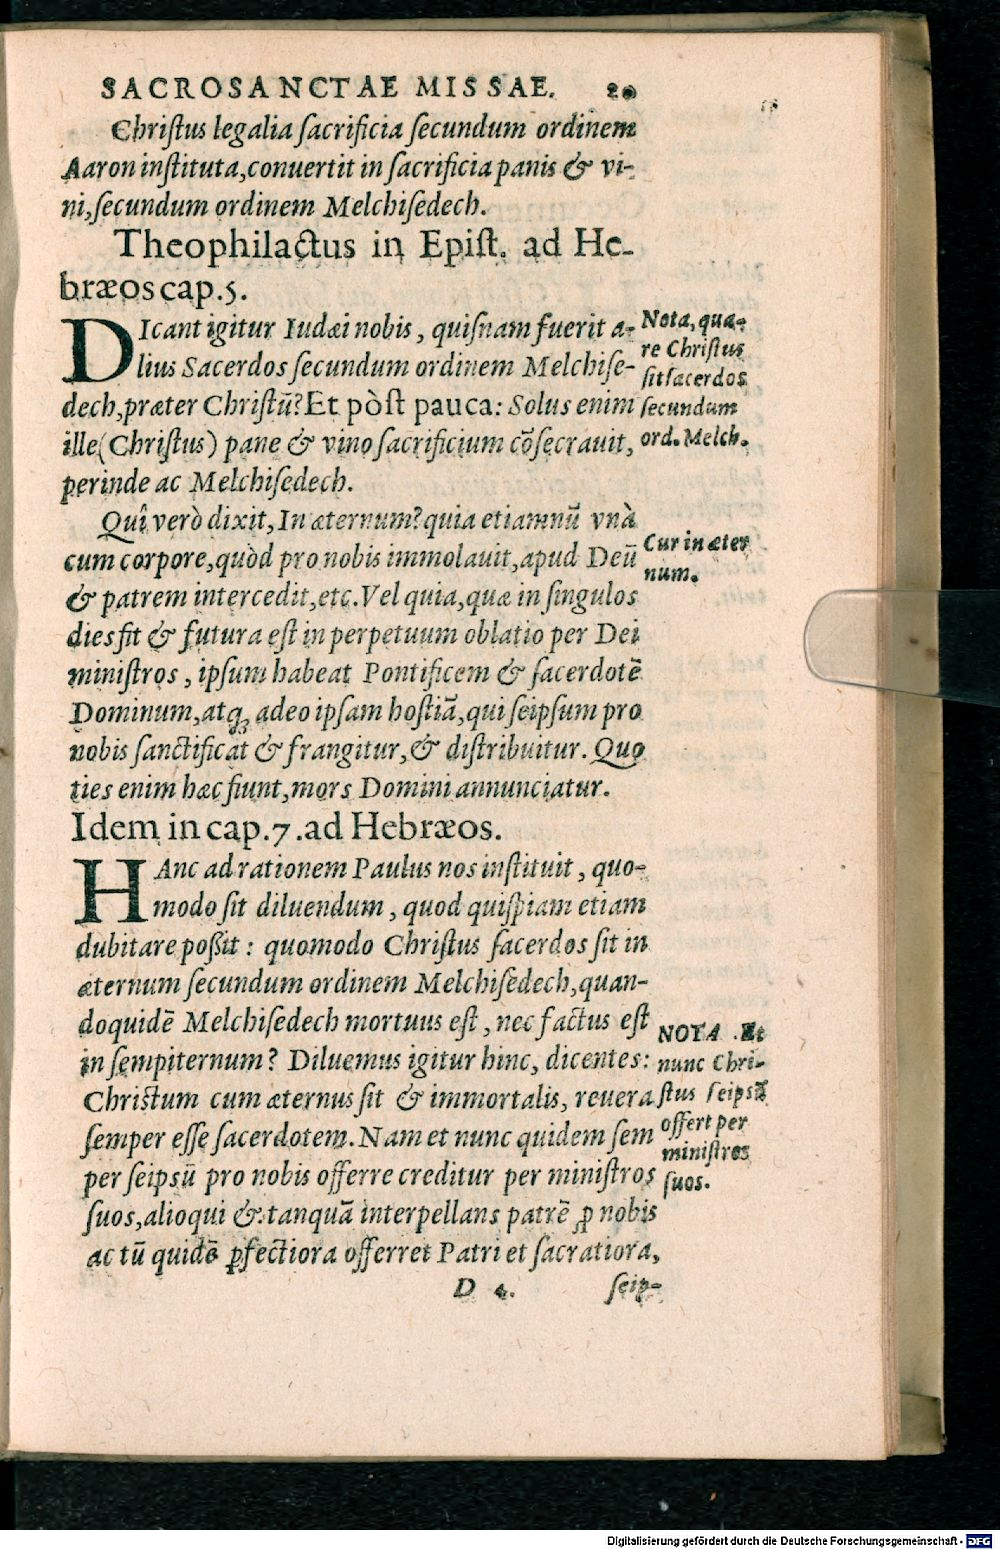 SACROSANCTAE MISSAE. 20
Chriſtus legalia ſacrificia ſecundum ordinem
Aaron inſtituta, conuertit in ſacrificia panis & vi-
ni, ſecundum ordinem Melchiſedech.
Theophilactus in Epiſt. ad He-
bræos cap. 5.
DIcant igitur Iudæi nobis, quiſnam fuerit a-
lius Sacerdos ſecundum ordinem Melchiſe-
dech, præter Chriſtū? Et pòſt pauca: Solus enim
ille (Chriſtus) pane & vino ſacrificium cōſecrauit,
perinde ac Melchiſedech.
Nota, qua-
re Chriſtus
ſit ſacerdos
ſecundum
ord. Melch.
Quî verò dixit, In æternum? quia etiamnū vnà
cum corpore, quòd pro nobis immolauit, apud Deū
& patrem intercedit, etc. Vel quia, quæ in ſingulos
dies fit & futura eſt in perpetuum oblatio per Dei
miniſtros, ipſum habeat Pontificem & ſacerdotē
Dominum, atq; adeo ipſam hoſtiā, qui ſeipſum pro
nobis ſanctificat & frangitur, & diſtribuitur. Quo
ties enim hæc fiunt, mors Domini annunciatur.
Cur in æter
num.
Idem in cap. 7. ad Hebræos.
HAnc ad rationem Paulus nos inſtituit, quo-
modo ſit diluendum, quod quiſpiam etiam
dubitare poßit: quomodo Chriſtus ſacerdos ſit in
æternum ſecundum ordinem Melchiſedech, quan-
doquidē Melchiſedech mortuus eſt, nec factus eſt
in ſempiternum? Diluemus igitur hinc, dicentes:
Chriſtum cum æternus ſit & immortalis, reuera
ſemper eſſe ſacerdotem. Nam et nunc quidem ſem
per ſeipsū pro nobis offerre creditur per miniſtros
ſuos, alioqui & tanquā interpellans patrē ꝓ nobis
ac tū quidē ꝑfectiora offerret Patri et ſacratiora,
NOTA. Et
nunc Chri-
ſtus ſeipsū
offert per
miniſtros
ſuos.
D 4. ſeip-
Digitalisierung gefördert durch die Deutsche Forschungsgemeinschaft - DFG